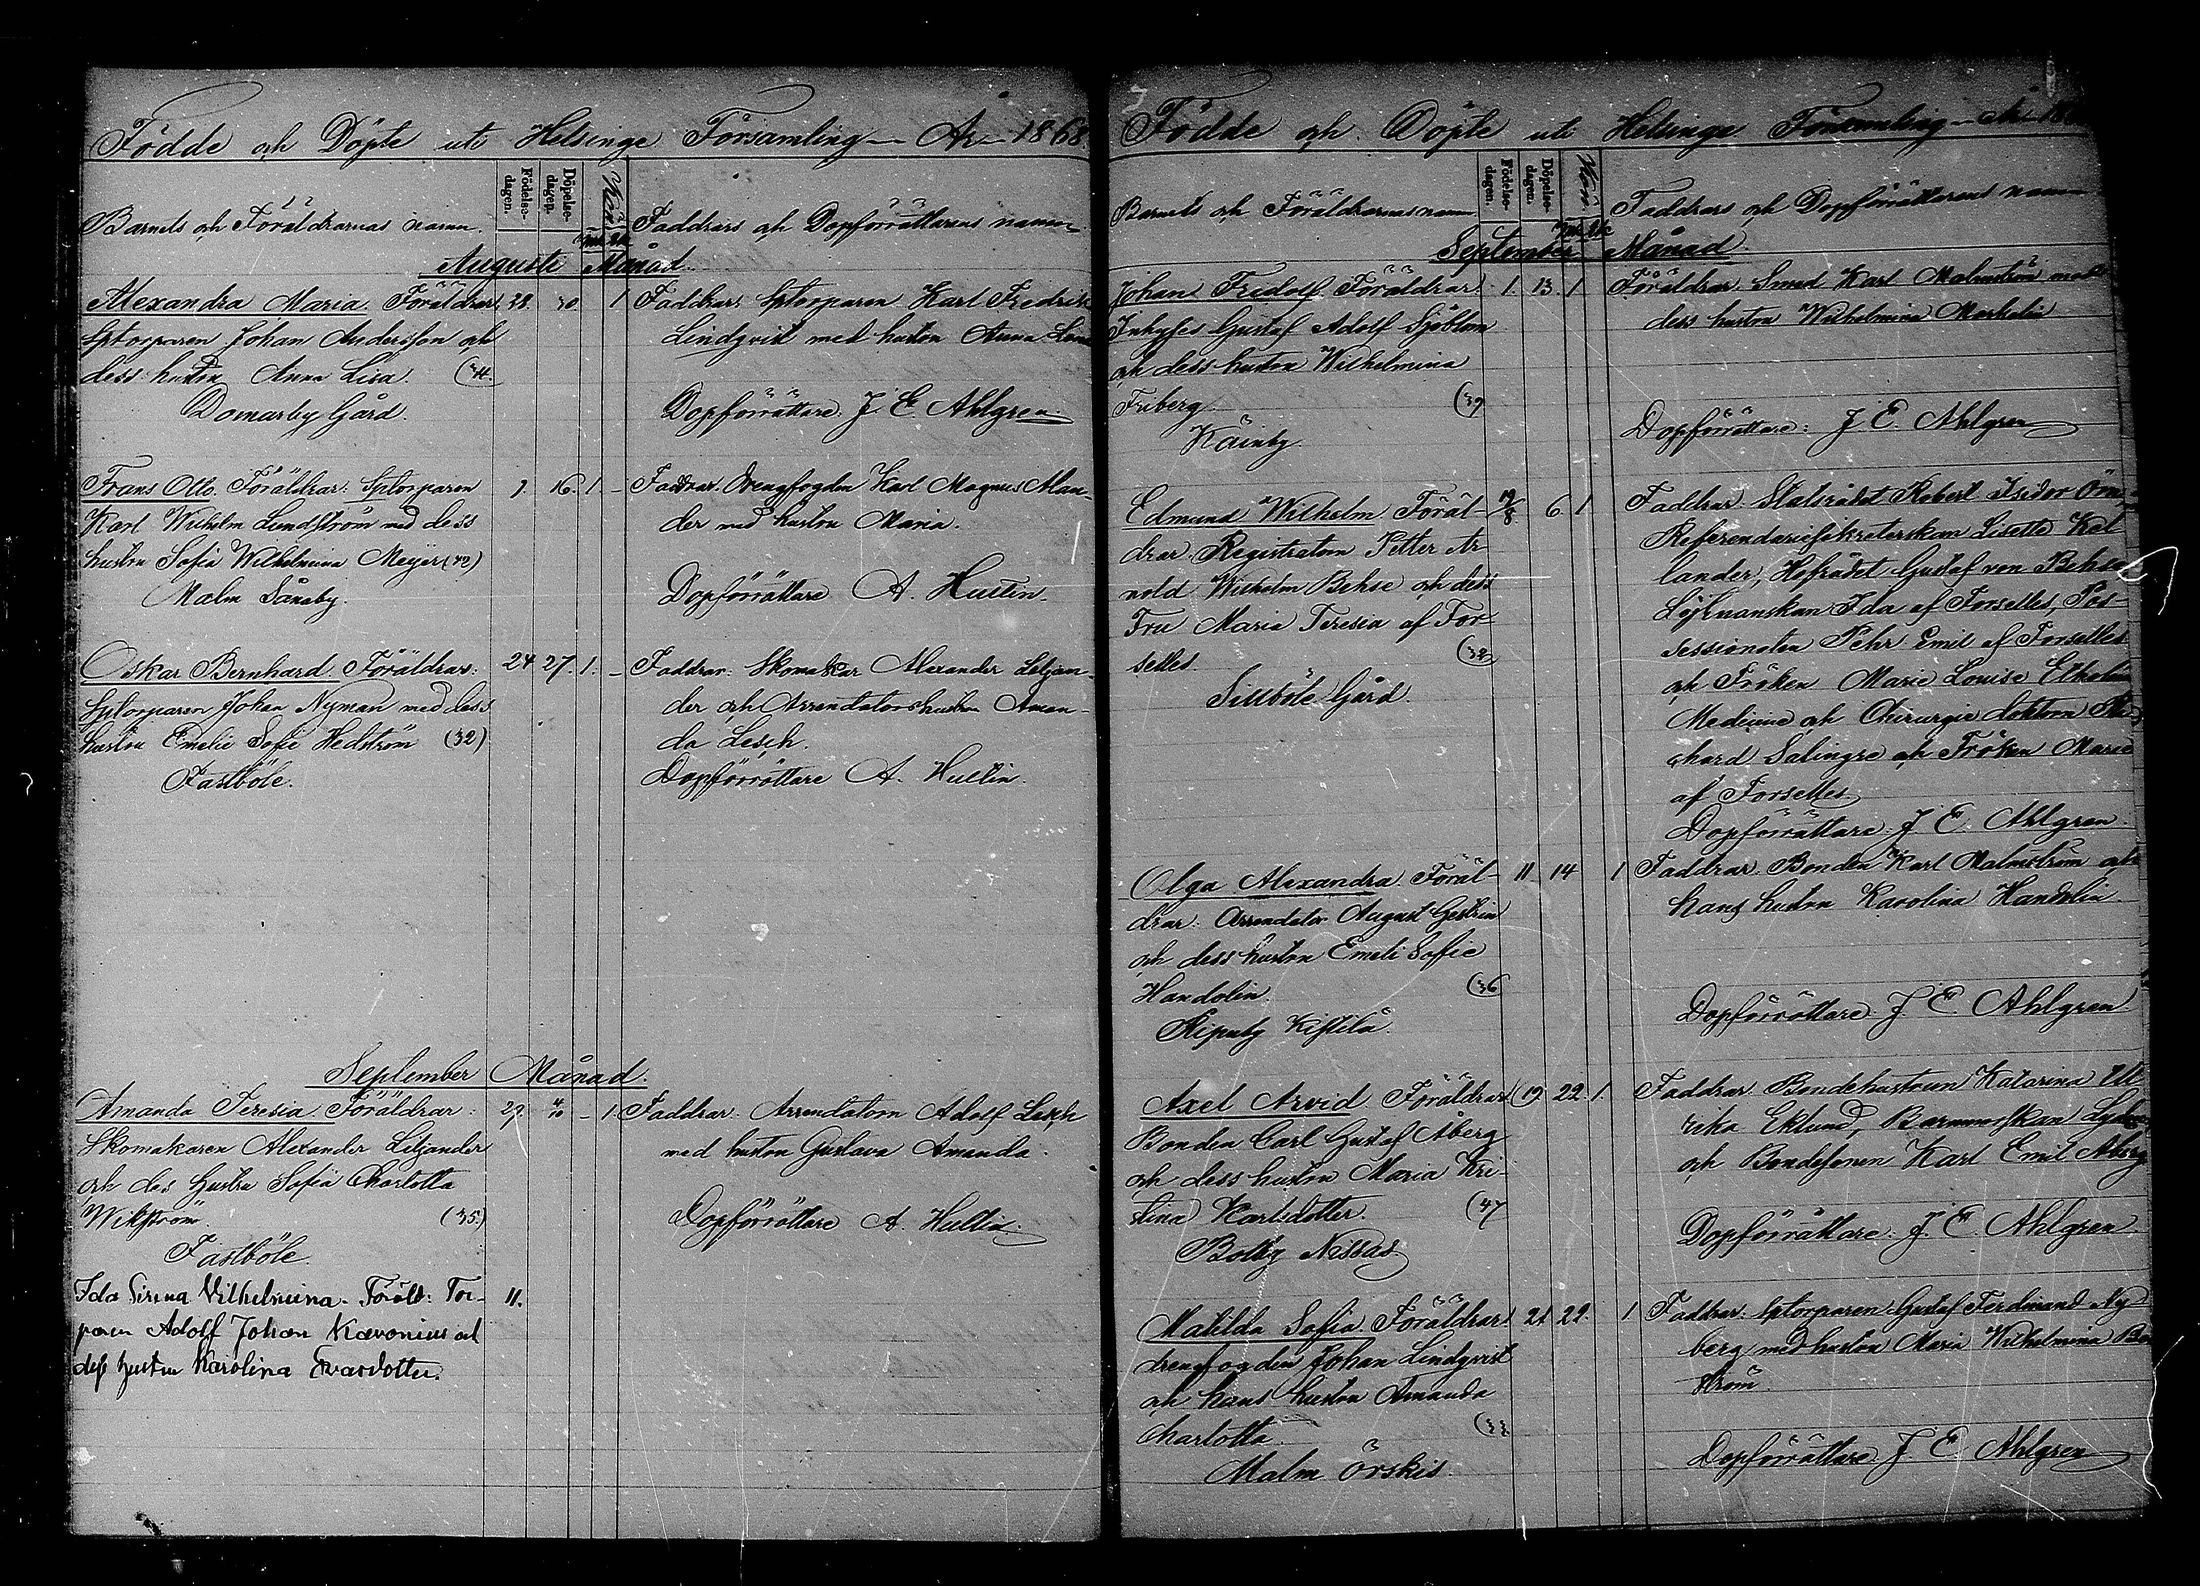 Födde och Döpte uti Helsinge Församling — År 1868
Barnets och Föräldrarnas namn.
Födelse-
dagen.
Döpelse-
dagen.
Kön
Faddrars och Dopförrättarens namn
Augusti Månad.
Alexandra Maria. Föräldrar 28. 30. 1 Faddrar: Sptorparen Karl Fredrik
Sptorparen Johan Andersson och Lindqvist med hustru Anna
dess hustru Anna Lisa.
Domarby Gård. Dopförrättare: J. E. Ahlgren
Frans Otto. Föräldrar: Sptorparen 16. 1. — Faddrar. Drengfogden Karl Magnus Man-
Karl Wilhelm Lundström med dess der med hustru Maria.
hustru Sofia Wilhelmina Meyer (42)
Malm Sånaby. Dopförrättare A. Hultin.
Oskar Bernhard. Föräldrar: 24 27. 1. — Faddrar: Skomakar Alexander Liljan-
Sptorparen Johan Nyman med dess der och Arrendatorshustru Aman-
hustru Emelie Sofie Hedström (32) da Lesch.
Fastböle. Dopförrättare A. Hultin.
September Månad.
Amanda Teresia. Föräldrar: 29. 4/10 — 1. Faddrar. Arrendatorn Adolf Lesch
Skomakaren Alexander Liljander med hustru Gustava Amanda.
och des hustru Sofia Charlotta
Wikström. (35.) Dopförrättare A. Hultin.
Fastböle.
Ida Sirena Vilhelmina. Föräld: Tor- 11.
paren Adolf Johan Kavonius och
dess hustru Karolina Evasdotter.
Födde och Döpte uti Helsinge Församling — År 18
Barnets och Föräldrarnas namn
Födelse-
dagen.
Döpelse-
dagen.
Kön.
Faddrars och Dopförrättarens namn
September Månad
Johan Fridolf. Föräldrar: 1. 13. 1 Föräldrar. Smed Karl Malmström med
Inhyses Gustaf Adolf Sjöblom dess hustru Wilhelmina
och dess hustru Wilhelmina
Friberg. (39
Käinby Dopförrättare: J. E. Ahlgren
Edmund Wilhelm Föräl- 19/8 6. 1 Faddrar. Statsrådet Robert Isidor Örn
drar. Registratorn Petter Ar Referendariesekreterskan Lisette Kal
nold Wilhelm Behse och dess lander, Hofrådet Gustaf von Behse
Fru Maria Teresia af For- Löjtnanskan Ida af Forselles, Pos-
selles. (32 sessionaten Pehr Emil af Forselles
Sillböle Gård. och Fröken Marie Louise Etholén
Medicine och Chirurgie doktorn
chard Salingre och Fröken Marie
af Forselles
Dopförrättare. J. E. Ahlgren.
Olga Alexandra. Föräl- 11 14 1 Faddrar. Bonden Karl Malmström och
drar: Arrendator August Gestrin hans hustru Karolina Handolin.
och dess hustru Emeli Sofie
Handolin. (36
Ripuby Kistila. Dopförrättare. J. E. Ahlgren
Axel Arvid. Föräldrar 19 22. 1. Faddrar. Bondehustrun Katarina Ul
Bonden Carl Gustaf Åberg rika Eklund, Barnmorskan
och dess hustru Maria Kri- och Bondesonen Karl Emil Åberg
stina Karlsdotter. (47
Botby Nissas Dopförrättare. J. E. Ahlgren
Matilda Sofia. Föräldrar 21 22. 1 Faddrar: Sptorparen Gustaf Ferdinand Ny
drengfogden Johan Lindqvist berg med hustru Maria Wilhelmina
och hans hustru Amanda ström.
Charlotta. (33
Malm Örskis. Dopförrättare. J. E. Ahlgren